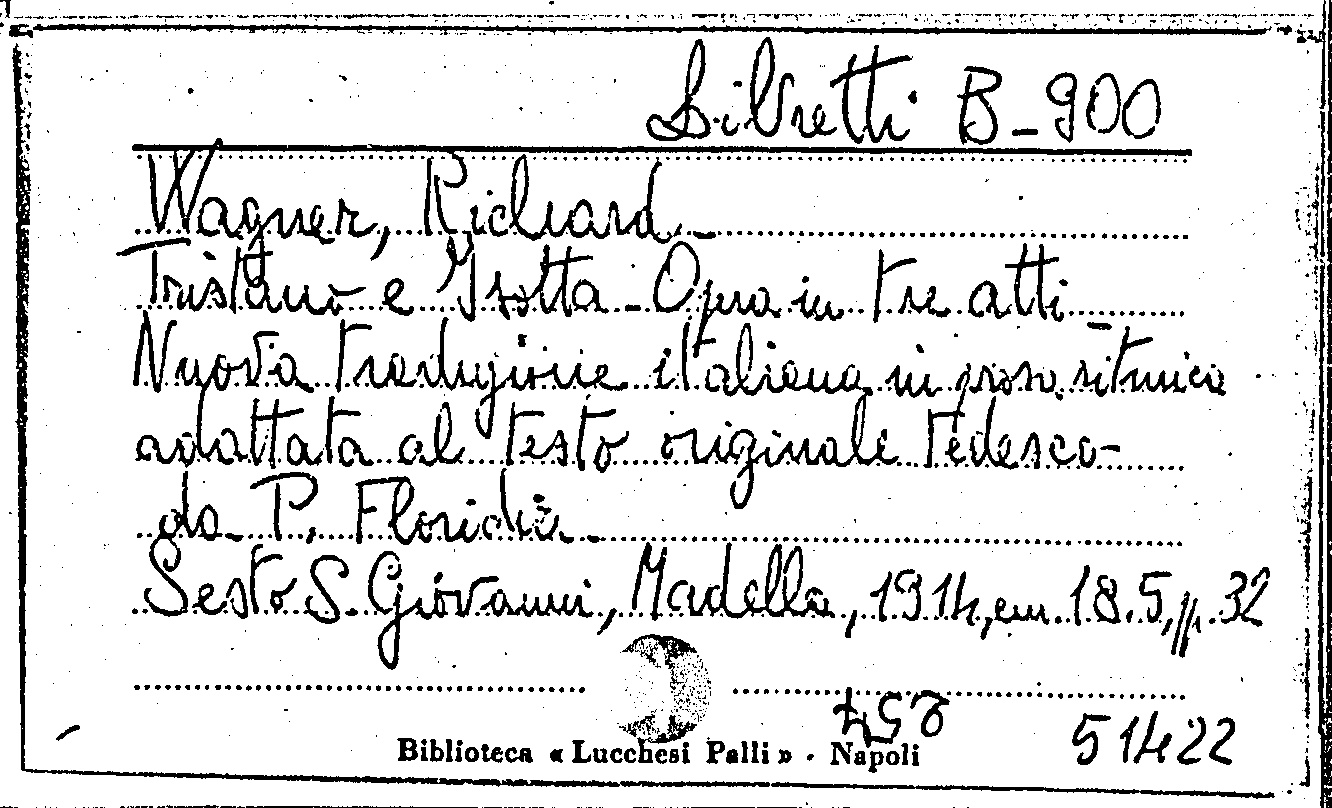 Libretti B-900
Wagner, Richard -
Tristano e Isotta - Opera in tre atti -
Nuova traduzione italiana in prosa ritmica
adattata al testo originale tedesco -
da P. Floridia. -
Sesto S. Giovanni, Madella, 1914, cm. 18.5, pp. 32
51422
Biblioteca « Lucchesi Palli » - Napoli